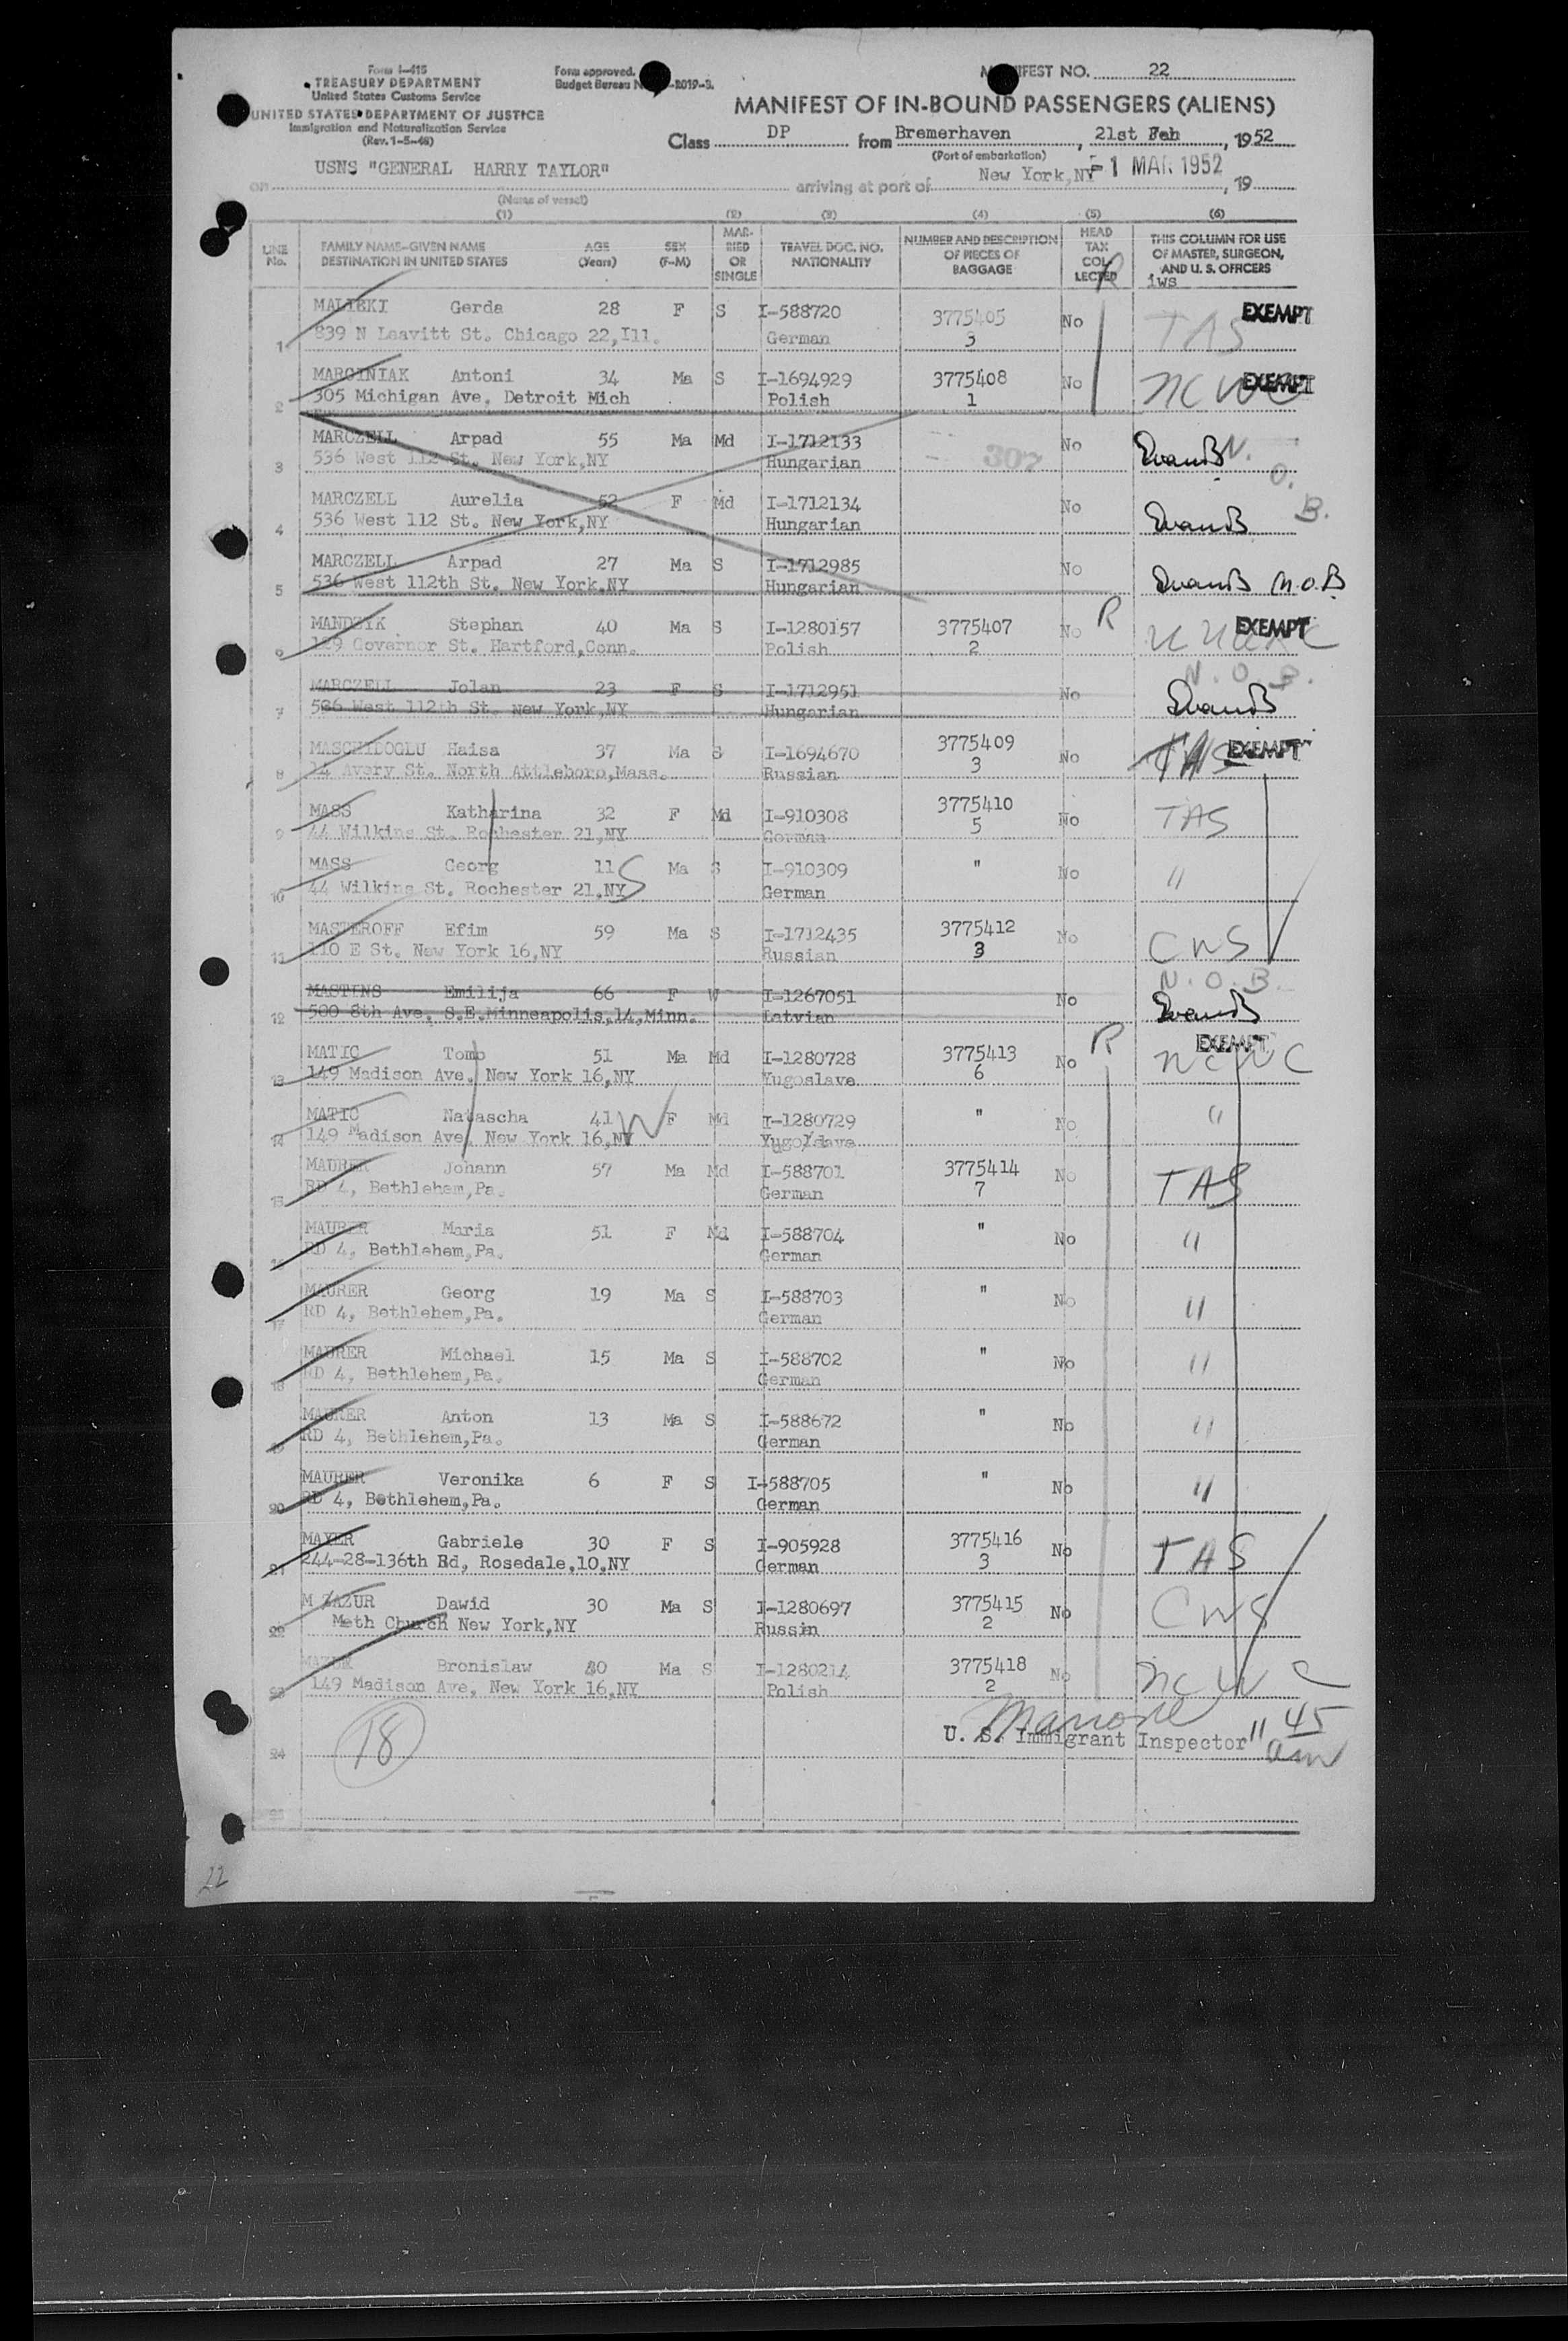 Form I-415
TREASURY DEPARTMENT
United States Customs Service
UNITED STATES DEPARTMENT OF JUSTICE
Immigration and Naturalization Service
(Rev. 1-5-46)
Form approved.
Budget Bureau N -R019-3.
MANIFEST NO. 22
MANIFEST OF IN-BOUND PASSENGERS (ALIENS)
Class DP from Bremerhaven, 21st Feb, 1952
(Port of embarkation)
on USNS "GENERAL HARRY TAYLOR" arriving at port of New York, NY -1 MAR 1952, 19
(Name of vessel)
(1) (2) (3) (4) (5) (6)
LINE No. FAMILY NAME-GIVEN NAME DESTINATION IN UNITED STATES AGE (Years) SEX (F-M) MARRIED OR SINGLE TRAVEL DOC. NO. NATIONALITY NUMBER AND DESCRIPTION OF PIECES OF BAGGAGE HEAD TAX COLLECTED THIS COLUMN FOR USE OF MASTER, SURGEON, AND U. S. OFFICERS
iws
R
MALIEKI Gerda 28 F S I-588720 3775405 No TAS EXEMPT
1 839 N Leavitt St. Chicago 22,Ill. German 3
MARCINIAK Antoni 34 Ma S I-1694929 3775408 No NCWC EXEMPT
2 305 Michigan Ave. Detroit Mich Polish 1
MARCZELL Arpad 55 Ma Md I-1712133 307 No N.O.B.
3 536 West 112 St. New York,NY Hungarian
MARCZELL Aurelia 52 F Md I-1712134 No
4 536 West 112 St. New York,NY Hungarian
MARCZELL Arpad 27 Ma S I-1712985 No N.O.B
5 536 West 112th St. New York.NY Hungarian
MANDZYK Stephan 40 Ma S I-1280157 3775407 No R EXEMPT
6 129 Governor St. Hartford,Conn. Polish 2
MARCZELL Jolan 23 F S I-1712951 No N.O.B.
7 536 West 112th St. New York,NY Hungarian
MASCHIDOGLU Haisa 37 Ma S I-1694670 3775409 No TAS EXEMPT
8 14 Avery St. North Attleboro,Mass. Russian 3
MASS Katharina 32 F Md I-910308 3775410 No TAS
9 44 Wilkins St. Rochester 21,NY German 5
MASS Georg 11 S Ma S I-910309 " No "
10 44 Wilkins St. Rochester 21.NY German
MASTEROFF Efim 59 Ma S I-1712435 3775412 No CWS
11 110 E St. New York 16,NY Russian 3
MASTINS Emilija 66 F W I-1267051 No N.O.B.
12 500 8th Ave. S.E.Minneapolis,14,Minn. Latvian
MATIC Tomo 51 Ma Md I-1280728 3775413 No R EXEMPT NCWC
13 149 Madison Ave. New York 16,NY Yugoslave 6
MATIC Natascha 41 W F Md I-1280729 " No "
14 149 Madison Ave. New York 16,NY Yugoslave
MAURER Johann 57 Ma Md I-588701 3775414 No TAS
15 RD 4, Bethlehem,Pa. German 7
MAURER Maria 51 F Md I-588704 " No "
16 RD 4, Bethlehem,Pa. German
MAURER Georg 19 Ma S I-588703 " No "
17 RD 4, Bethlehem,Pa. German
MAURER Michael 15 Ma S I-588702 " No "
18 RD 4, Bethlehem,Pa. German
MAURER Anton 13 Ma S I-588672 " No "
19 RD 4, Bethlehem,Pa. German
MAURER Veronika 6 F S I-588705 " No "
20 RD 4, Bethlehem,Pa. German
MAYER Gabriele 30 F S I-905928 3775416 No TAS
21 244-28-136th Rd, Rosedale,10,NY German 3
M ZAZUR Dawid 30 Ma S I-1280697 3775415 No CWS
22 Meth Church New York,NY Russin 2
Bronislaw 40 Ma S I-1280214 3775418 No NCWC
23 149 Madison Ave, New York 16,NY Polish 2
U. S. Immigrant Inspector 11 45 am
18
24
25
22